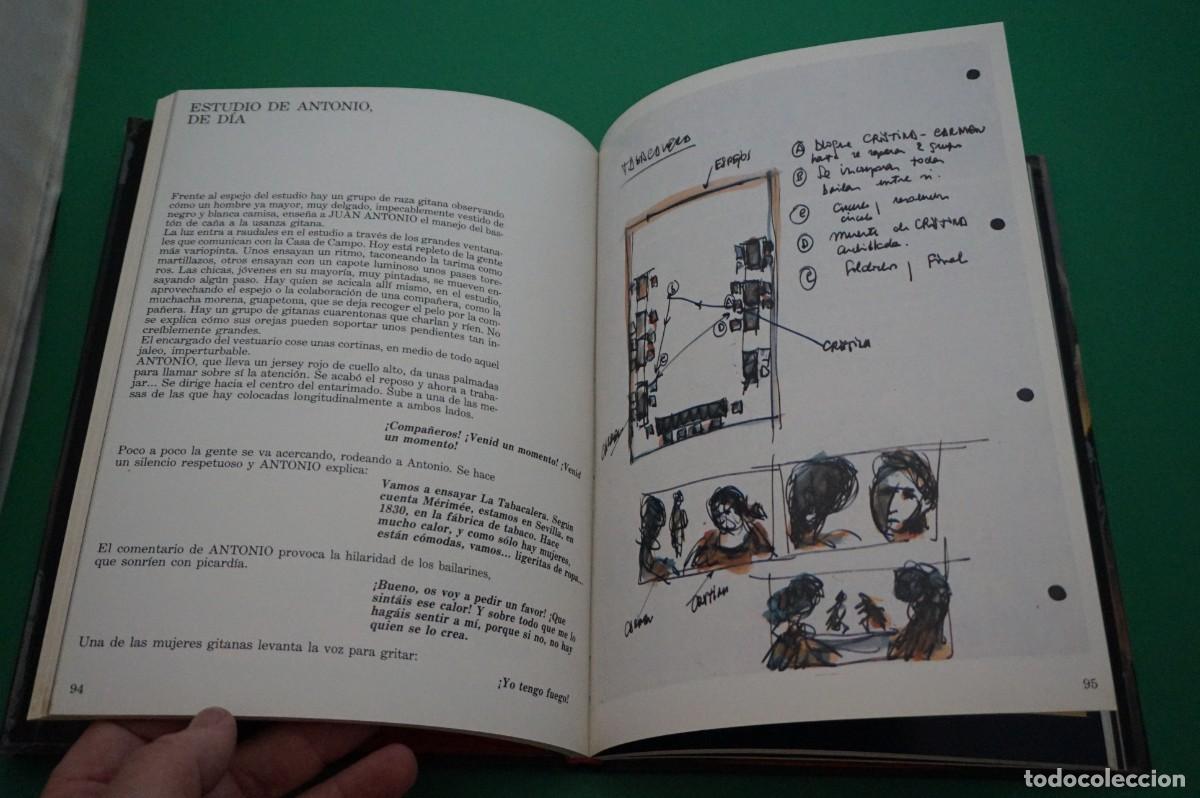 ESTUDIO DE ANTONIO,
DE DÍA
Frente al espejo del estudio hay un grupo de raza gitana observando
cómo un hombre ya mayor, muy delgado, impecablemente vestido de
negro y blanca camisa, enseña a JUAN ANTONIO el manejo del bas-
tón de caña a la usanza gitana.
La luz entra a raudales en el estudio a través de los grandes ventana-
les que comunican con la Casa de Campo. Hoy está repleto de la gente
más variopinta. Unos ensayan un ritmo, taconeando la tarima como
martillazos, otros ensayan con un capote luminoso unos pases tore-
ros. Las chicas, jóvenes en su mayoría, muy pintadas, se mueven en-
sayando algún paso. Hay quien se acicala allí mismo, en el estudio,
aprovechando el espejo o la colaboración de una compañera, como la
muchacha morena, guapetona, que se deja recoger el pelo por la com-
pañera. Hay un grupo de gitanas cuarentonas que charlan y ríen. No
se explica cómo sus orejas pueden soportar unos pendientes tan in-
creíblemente grandes.
El encargado del vestuario cose unas cortinas, en medio de todo aquel
jaleo, imperturbable.
ANTONIO, que lleva un jersey rojo de cuello alto, da unas palmadas
para llamar sobre sí la atención. Se acabó el reposo y ahora a traba-
jar... Se dirige hacia el centro del entarimado. Sube a una de las me-
sas de las que hay colocadas longitudinalmente a ambos lados.
¡Compañeros! ¡Venid un momento! ¡Venid
un momento!
Poco a poco la gente se va acercando, rodeando a Antonio. Se hace
un silencio respetuoso y ANTONIO explica:
Vamos a ensayar La Tabacalera. Según
cuenta Mérimée, estamos en Sevilla, en
1830, en la fábrica de tabaco. Hace
mucho calor, y como sólo hay mujeres,
están cómodas, vamos... ligeritas de ropa...
El comentario de ANTONIO provoca la hilaridad de los bailarines,
que sonríen con picardía.
¡Bueno, os voy a pedir un favor! ¡Que
sintáis ese calor! Y sobre todo que me lo
hagáis sentir a mí, porque si no, no hay
quien se lo crea.
Una de las mujeres gitanas levanta la voz para gritar:
¡Yo tengo fuego!
94
ESPEJOS
A CRISTINA - CARMEN
2 grupo
B Se incorporan todas
bailan entre si.
C
D muerte de CRISTINA
acuchillada.
Final
A
D
CRISTINA
CRISTINA
CARMEN
95
todocoleccion